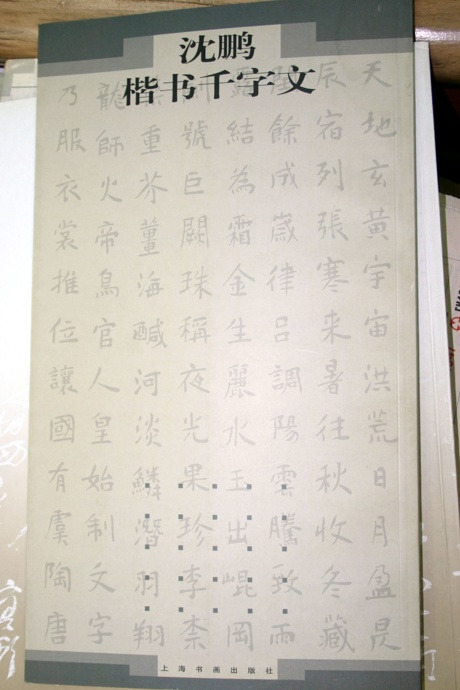 沈鹏
楷书千字文
天地玄黃宇宙洪荒日月盈昃
辰宿列張寒来暑往秋收冬藏
餘成歲律吕調陽雲騰致雨
露結為霜金生麗水玉出崐岡
號巨闕珠稱夜光果珍李柰
重芥薑海鹹河淡鱗潛羽翔
龍師火帝鳥官人皇始制文字
乃服衣裳推位讓國有虞陶唐
上海书画出版社